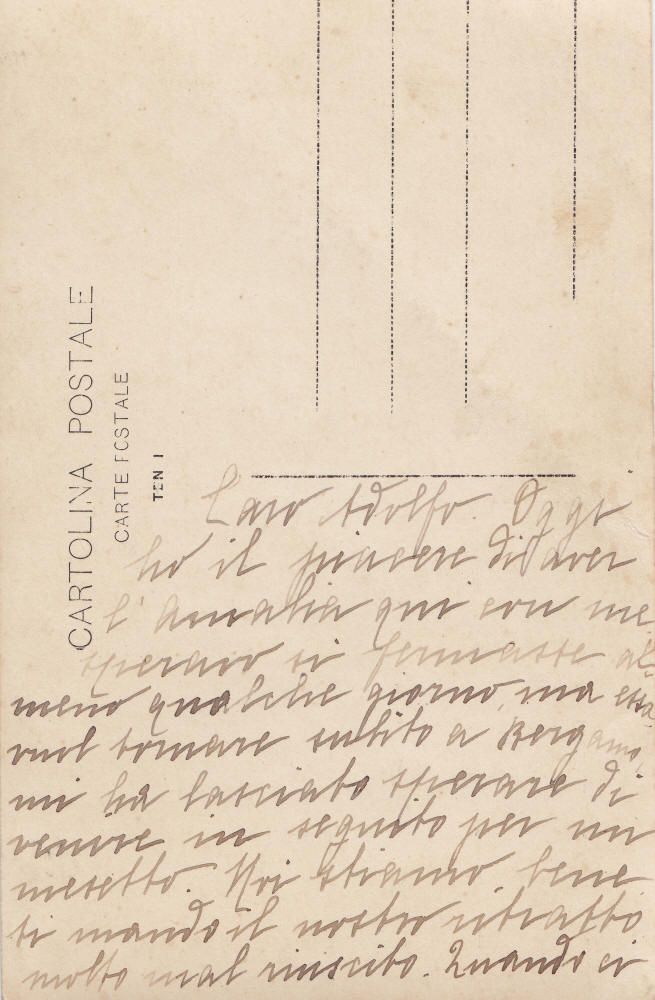 CARTOLINA POSTALE
CARTE POSTALE
Caro Adolfo. Oggi
ho il piacere di aver
l'Amalia qui con me
speravo si fermasse al-
meno qualche giorno, ma essa
vuol tornare subito a Bergamo,
mi ha lasciato sperare di
venire in seguito per un
mesetto. Noi stiamo bene
ti mando il nostro ritratto
molto mal riuscito. Quando ci